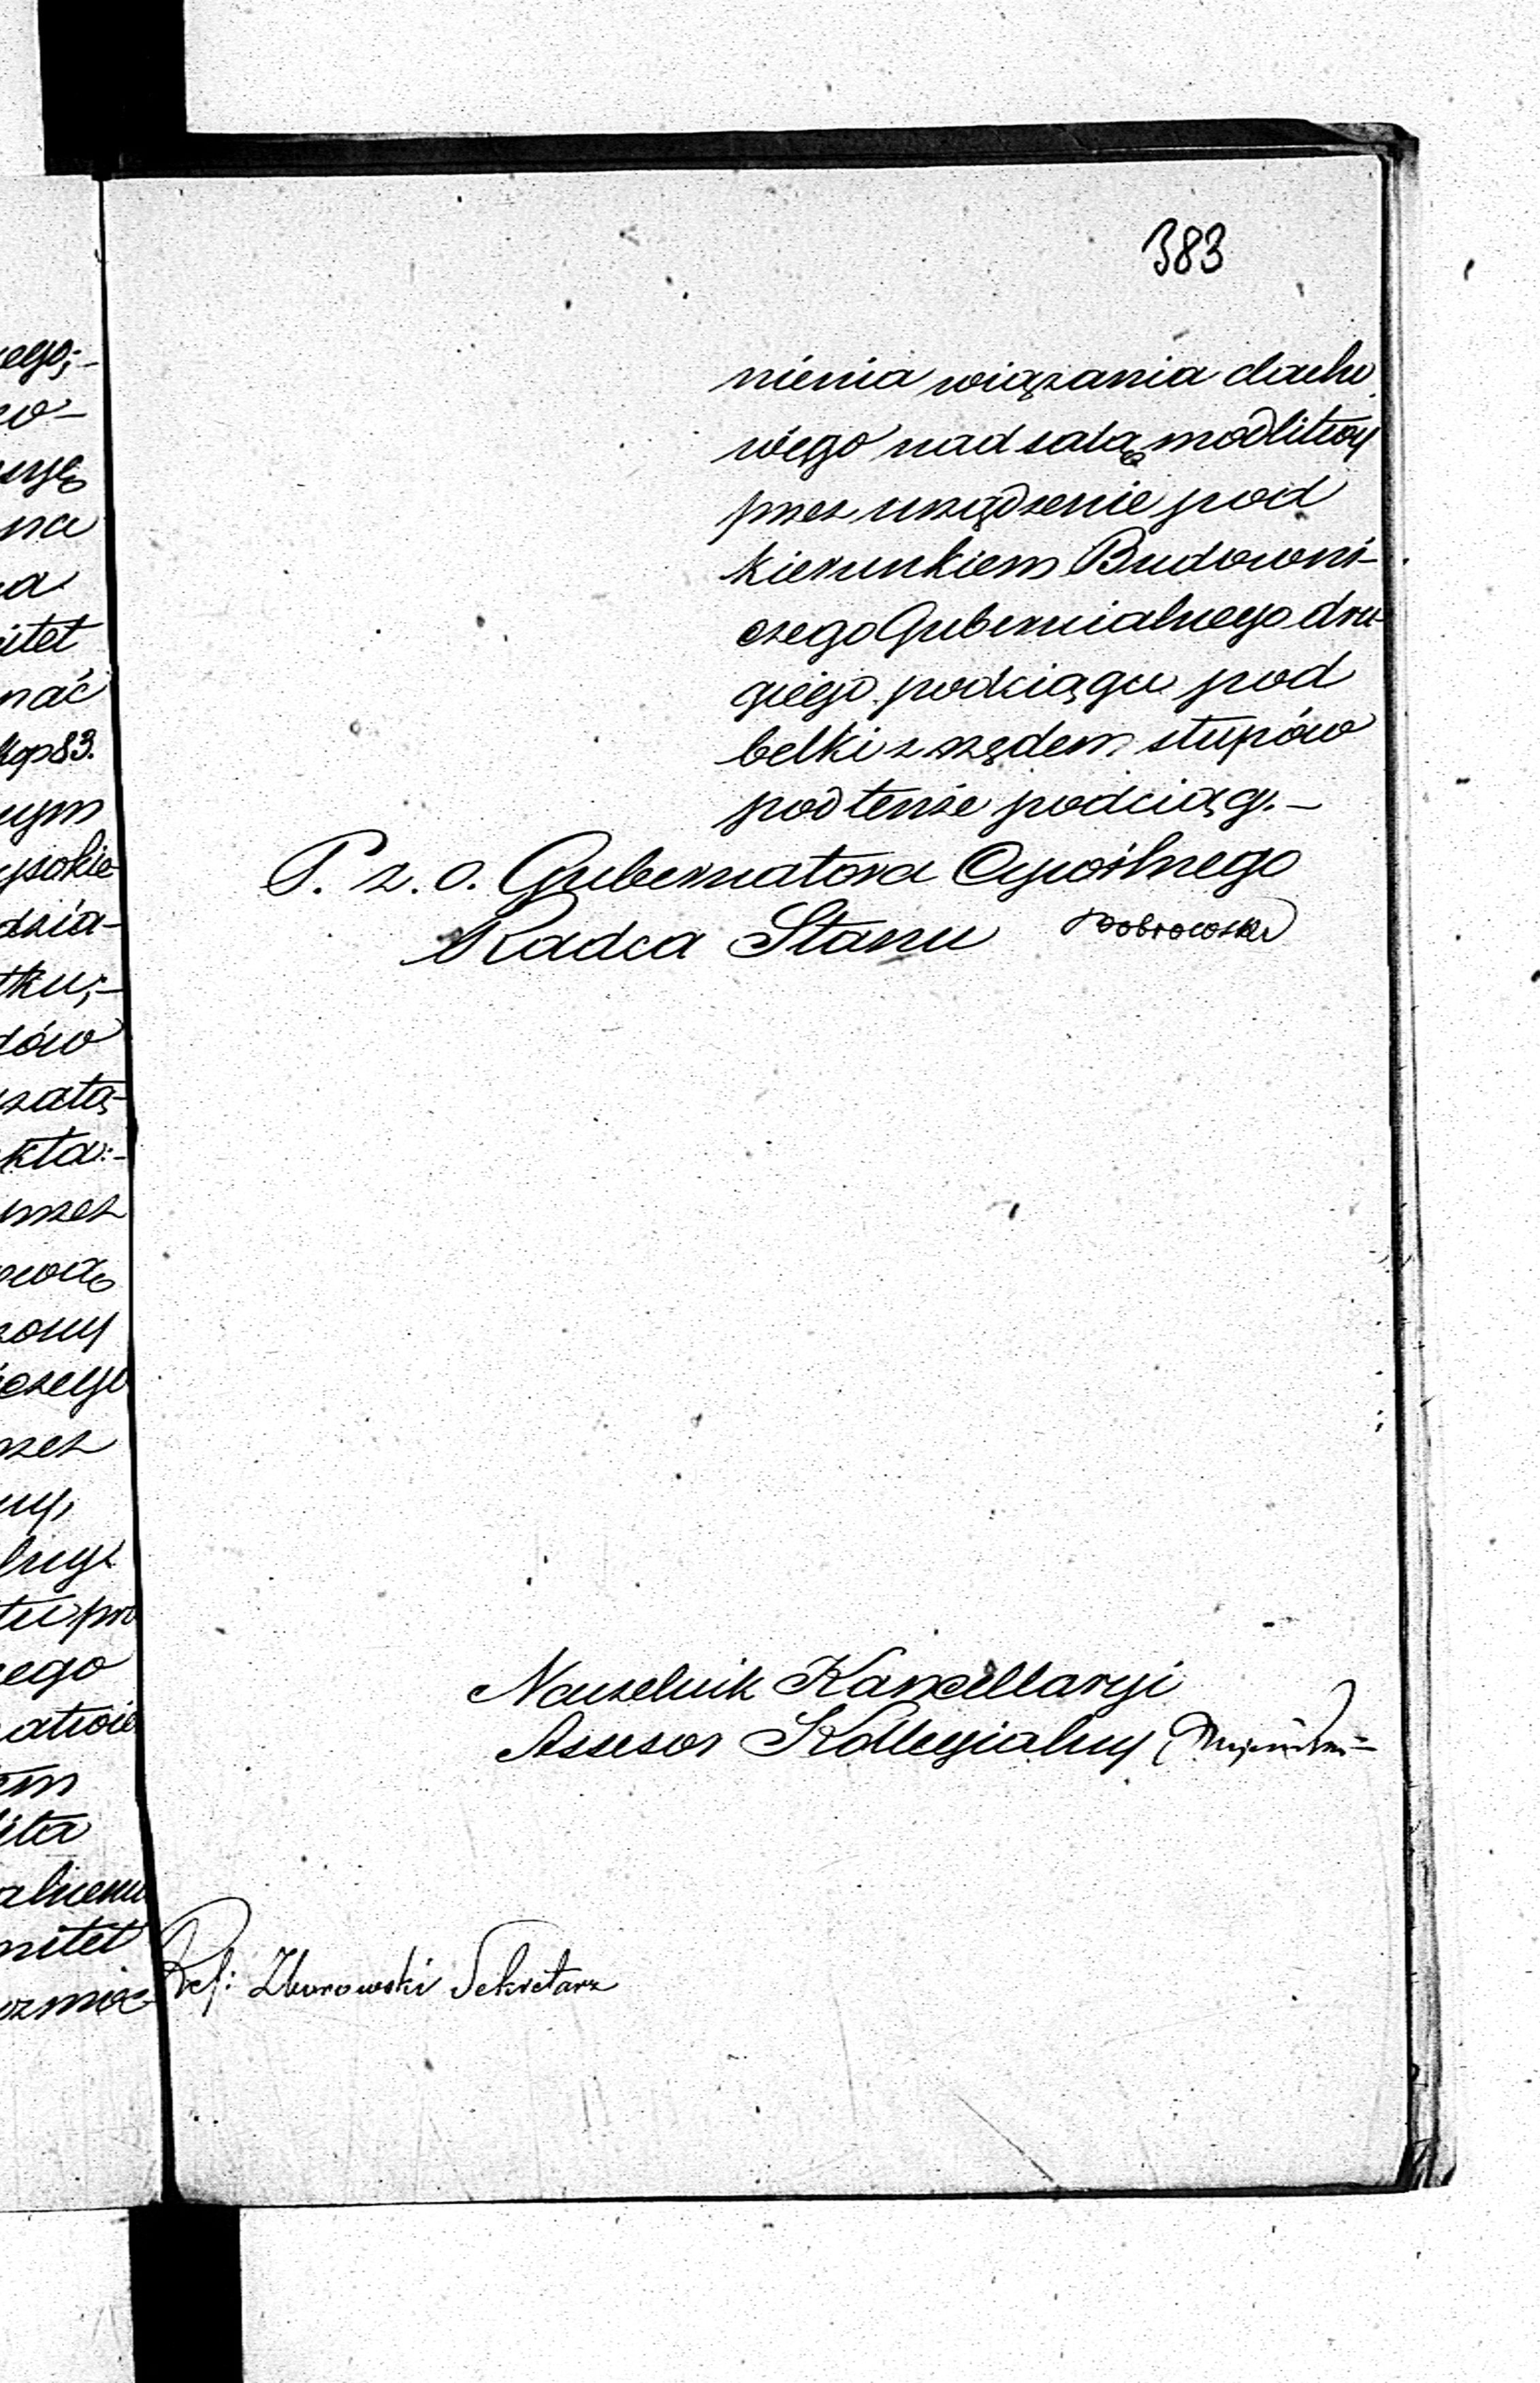 383
nienia wiązania dacho
wego nad salą modlitwy
przez urządzenie pod
kierunkiem Budowni-
czego Gubernialnego dru-
giego podciągu pod
belki z rzędem słupów
pod tenże podciąg.-
P. z. o. Gubernatora Cywilnego
Radca Stanu Dobrowolski
Naczelnik Kancellaryi
Assesor Kollegialny
Ref: Zborowski Sekretarz
ego;-
wo-
na
a
itet
nać
kop 83.
nym
ysokie
dzia-
tku;-
dów
szatą-
kta:-
przez
ową
zony
iczego
rzez
ny,
lnyz
tu pro
ego
em
lita
alnemu
mitet